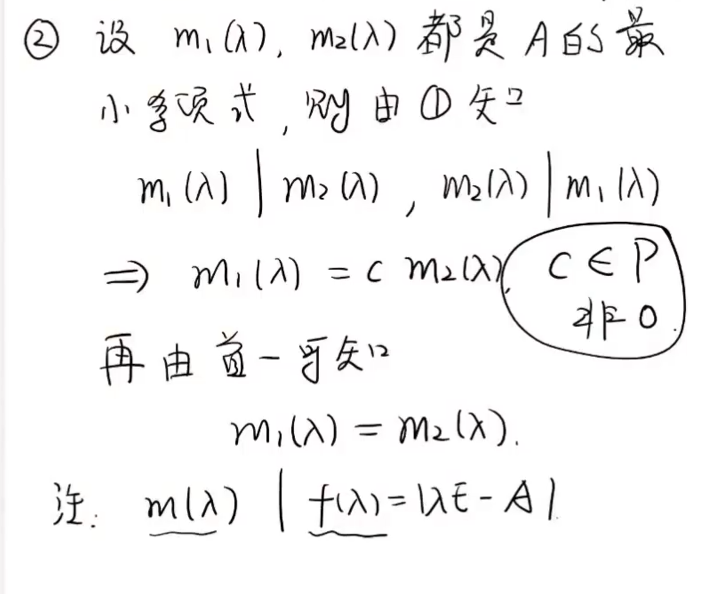 ② 设 m₁(λ), m₂(λ) 都是 A 的最
小多项式, 则由①知
m₁(λ) | m₂(λ), m₂(λ) | m₁(λ)
⇒ m₁(λ) = c m₂(λ), c∈P
非0.
再由首一可知
m₁(λ) = m₂(λ).
注: m(λ) | f(λ)=|λE-A|